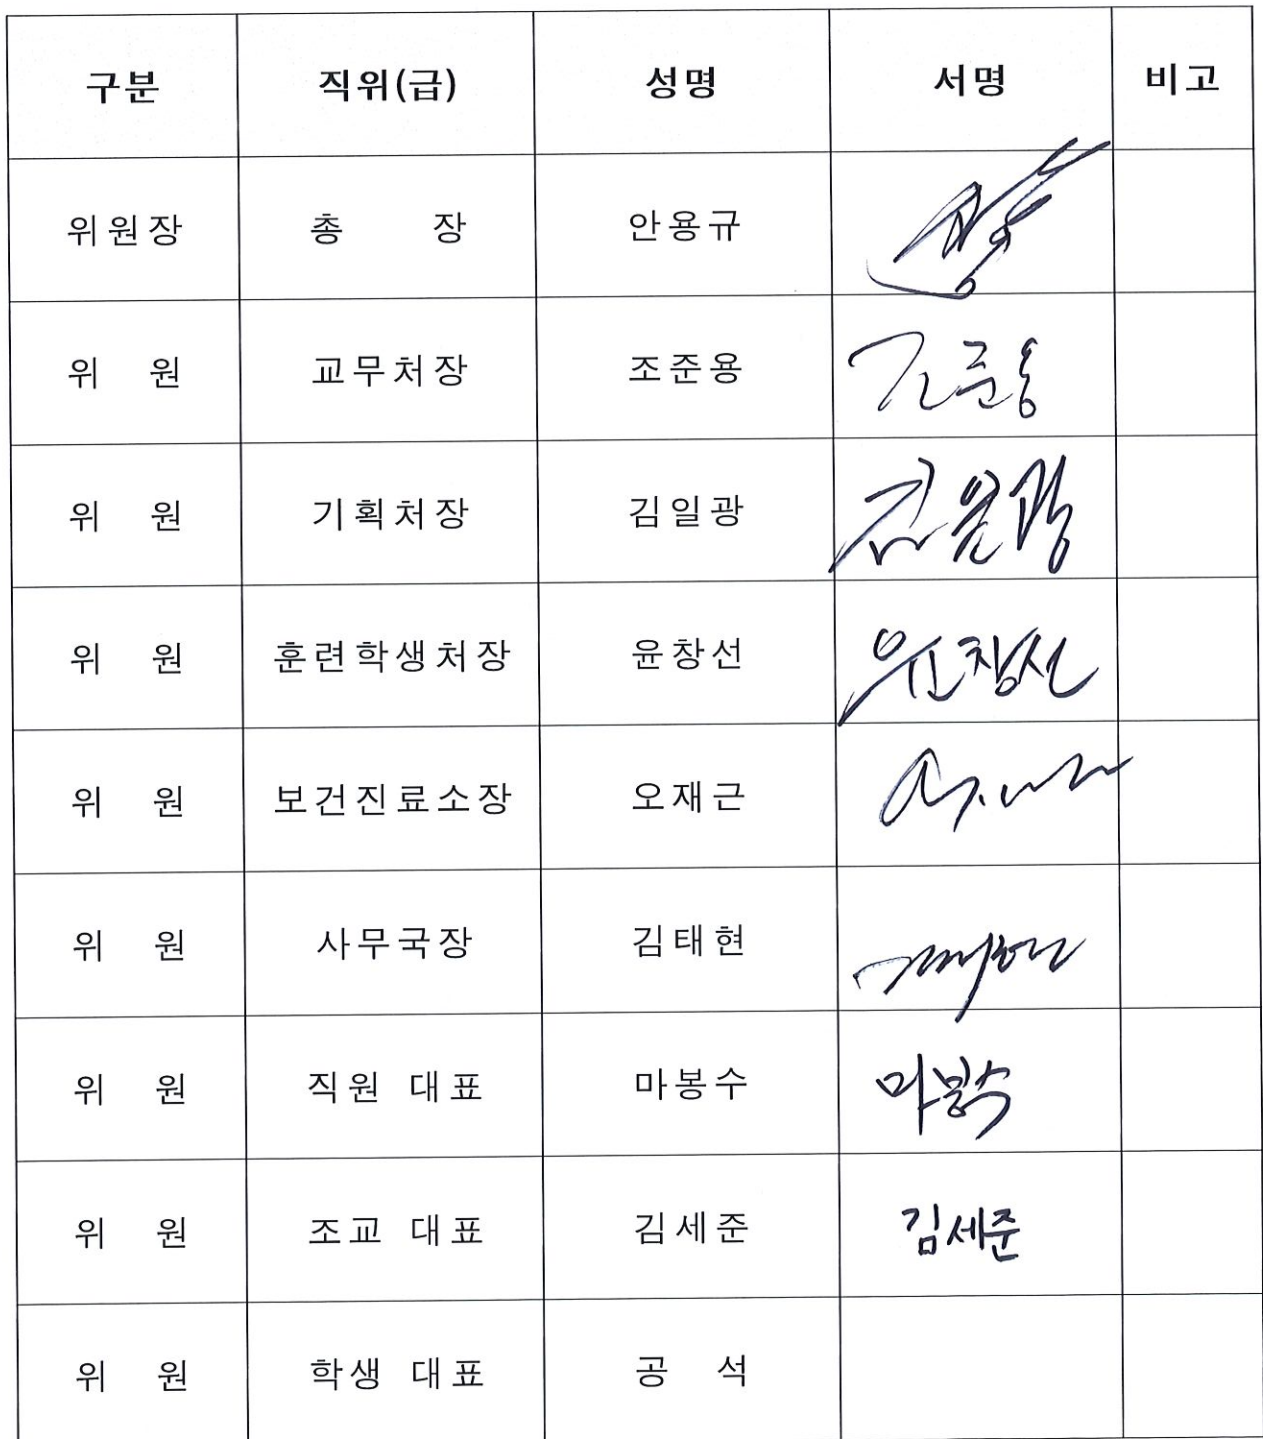 구분 직위(급) 성명 서명 비고
위원장 총 장 안용규
위 원 교무처장 조준용 조준용
위 원 기획처장 김일광 김일광
위 원 훈련학생처장 윤창선 윤창선
위 원 보건진료소장 오재근
위 원 사무국장 김태현
위 원 직원 대표 마봉수 마봉수
위 원 조교 대표 김세준 김세준
위 원 학생 대표 공 석